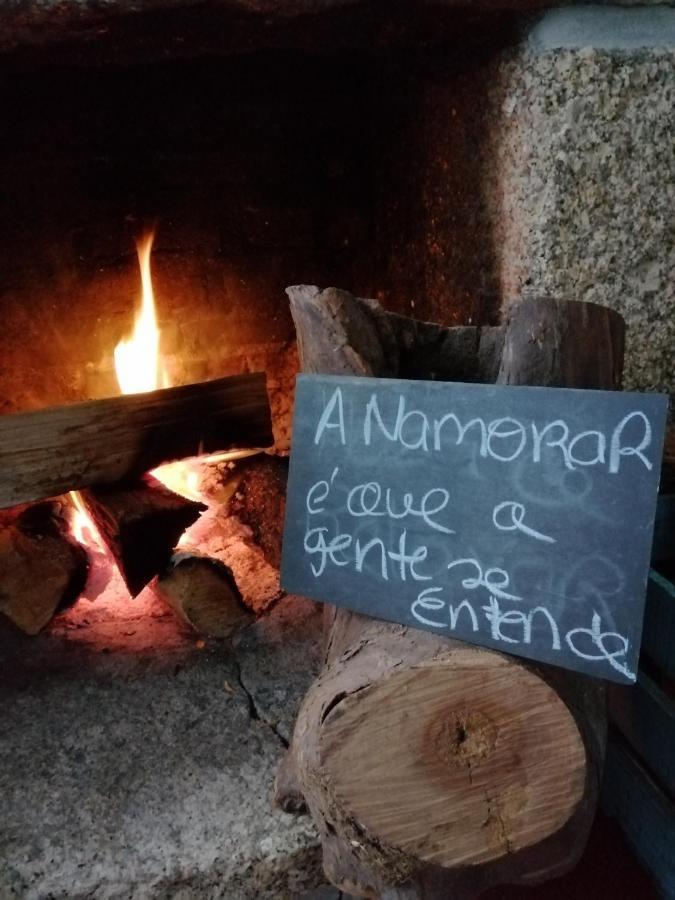 A NAMORAR
é que a
gente se
entende